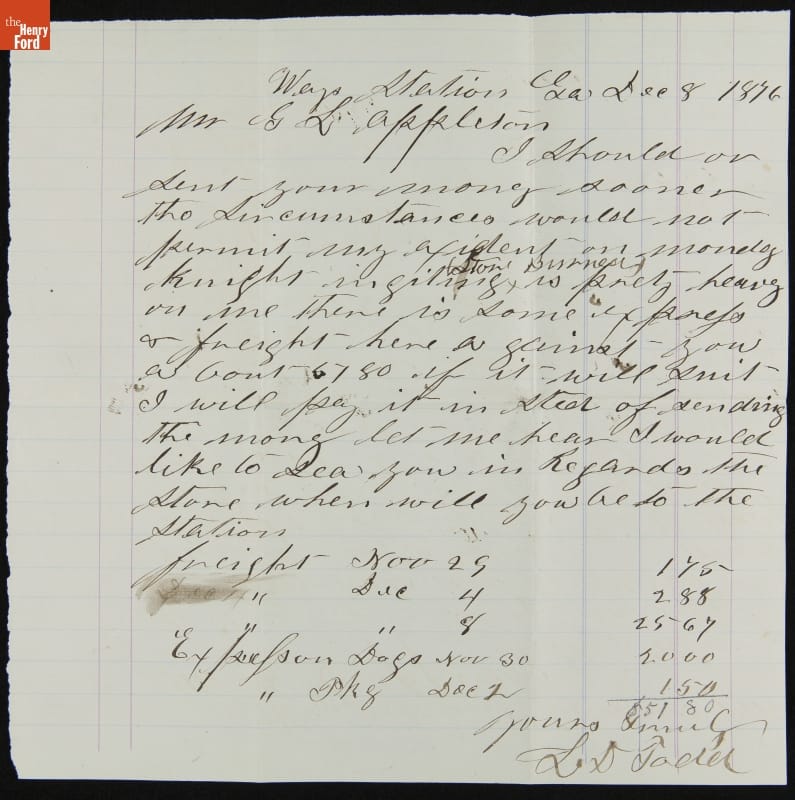 the
Henry
Ford
Ways Station Ga Dec 8 1876
Mr G L Appleton
I should ov
sent your mony sooner
tho Sircumstances would not
permit my axident on monday
(Store Burned)
Knight is prety heavy
on me there is some express
& freight here a gainst you
a bout 5180 if it will Suit
I will pay it in sted of sending
the mony let me hear I would
like to Sea you in Regards the
store when will you be to the
Station
freight Nov 29 175
" Dec 4 288
" " 8 2567
Express on Dogs Nov 30 2000
" Pkg Dec 2 150
$51 80
Yours Truly
L D Todd